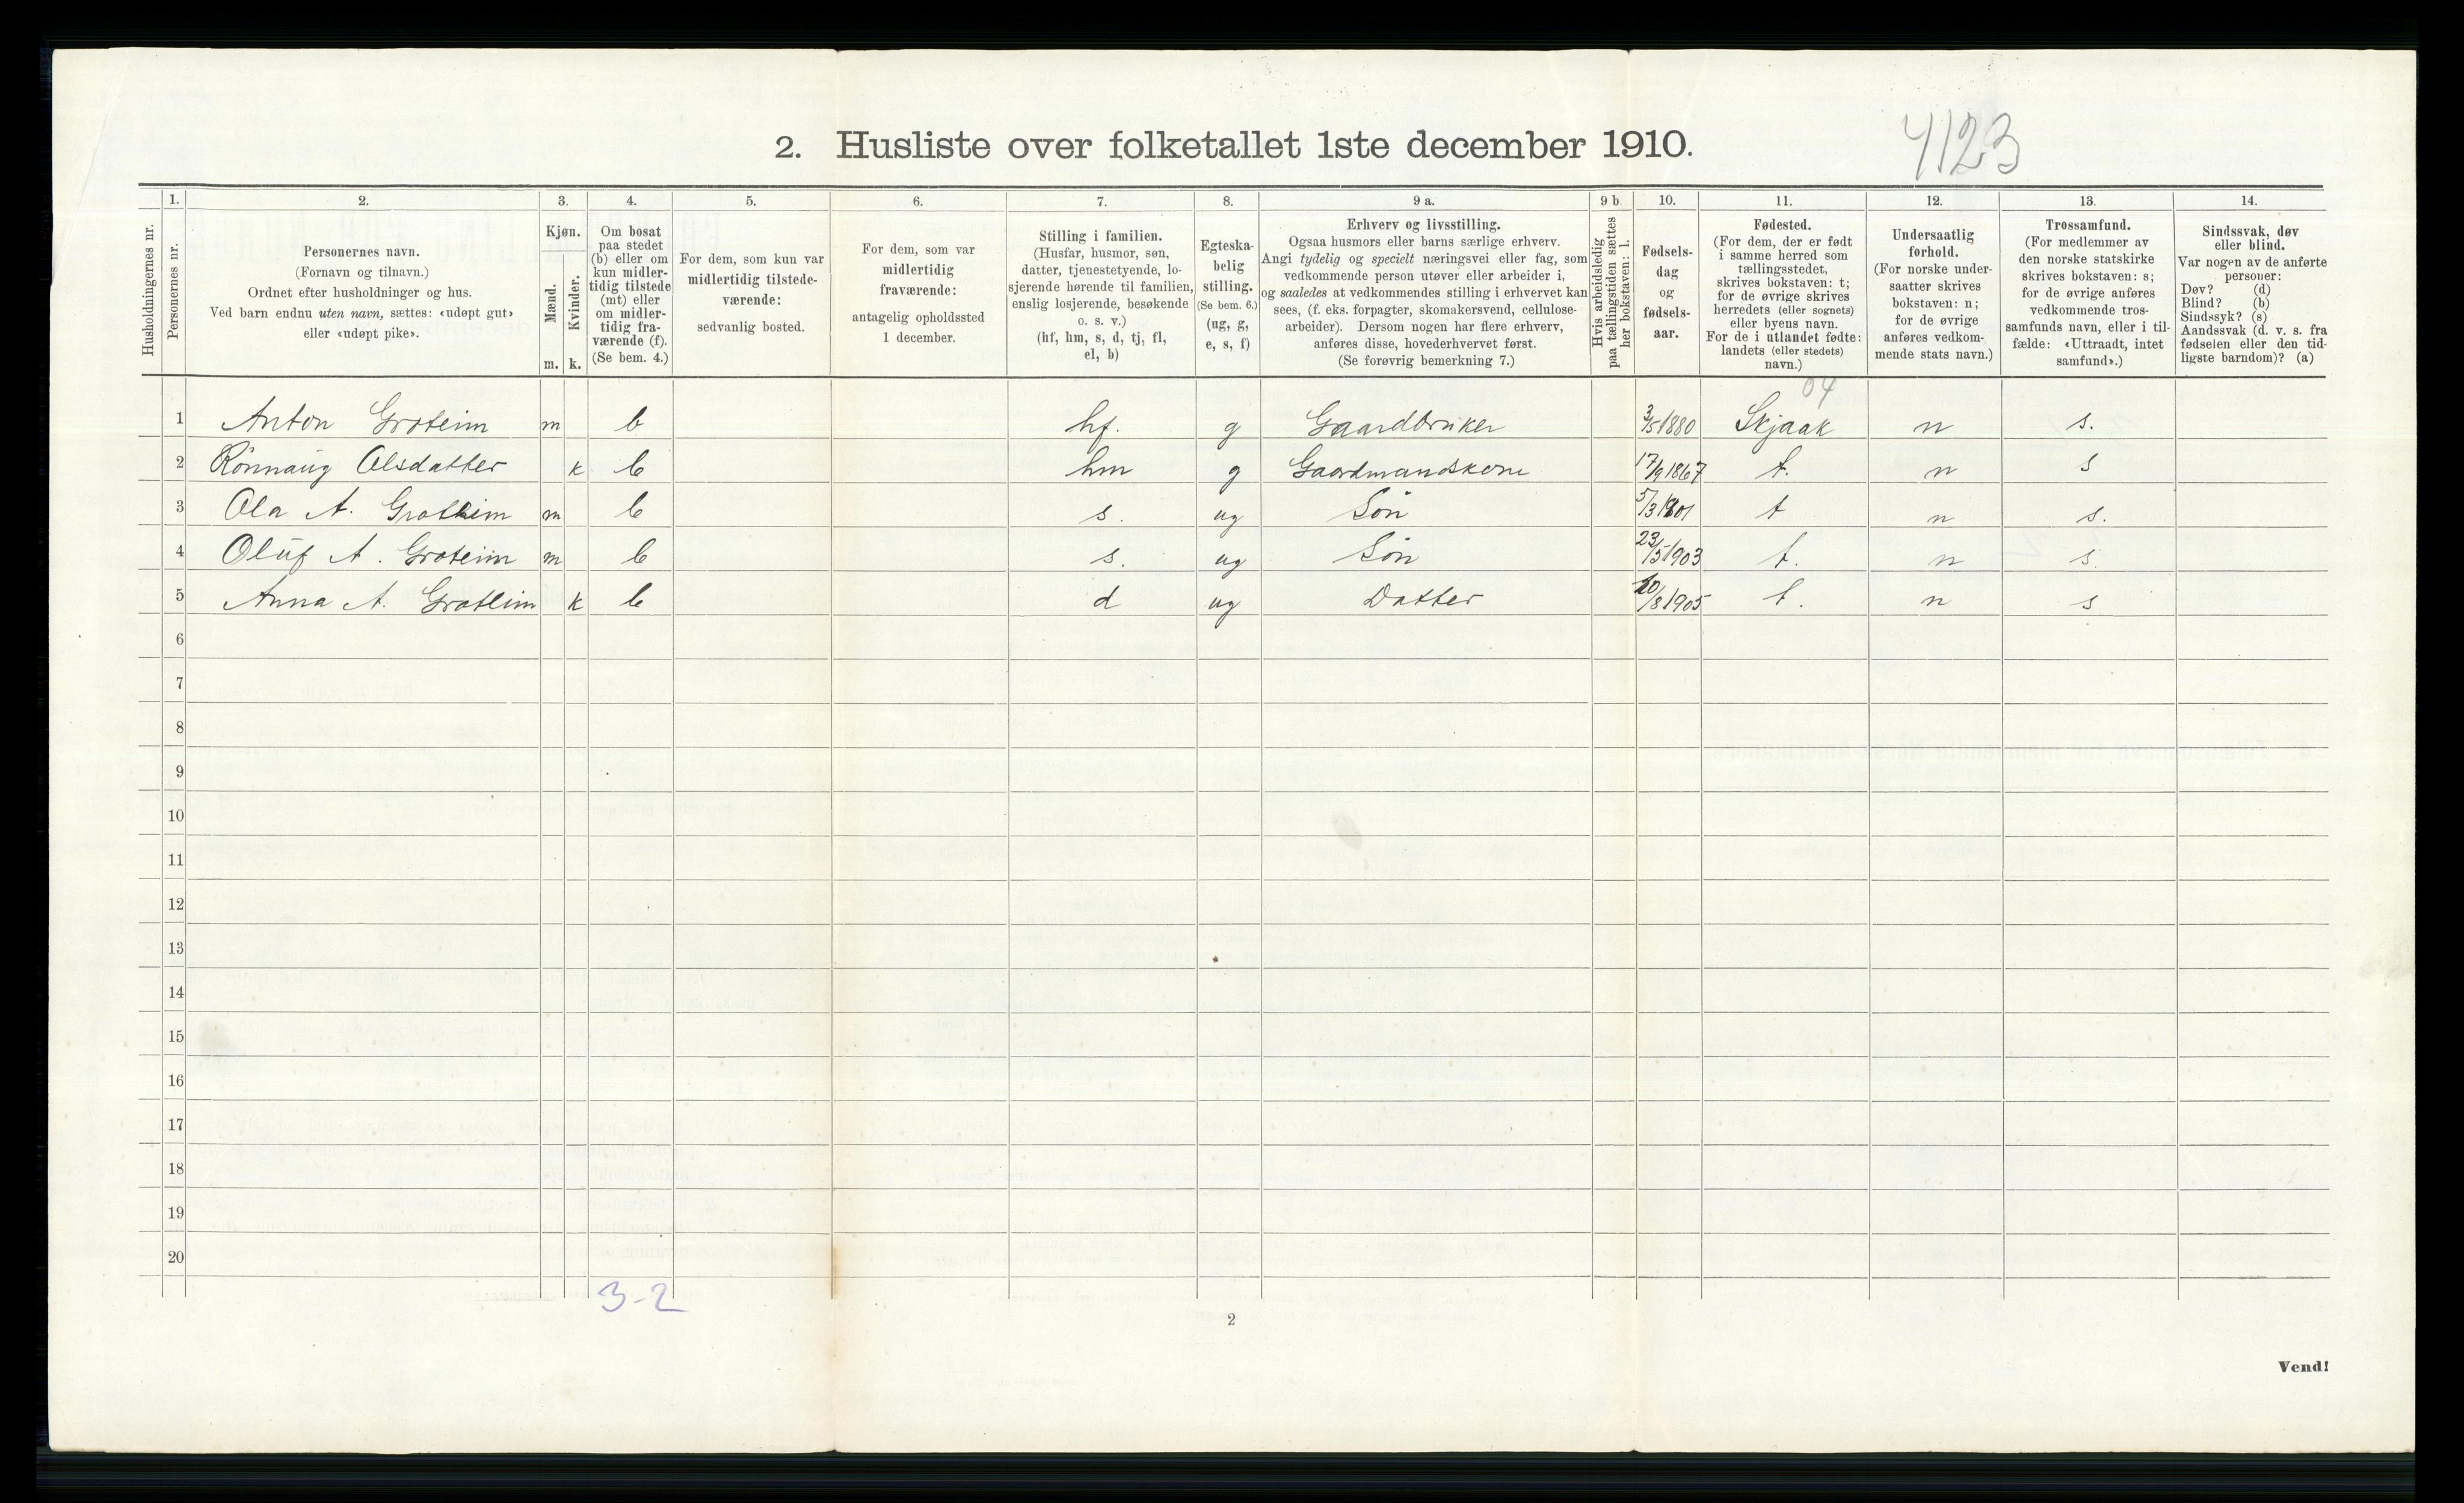 4123
2. Husliste over folketallet 1ste december 1910.
Husholdningernes nr.
1.
Personernes nr.
2.
Personernes navn.
(Fornavn og tilnavn.)
Ordnet efter husholdninger og hus.
Ved barn endnu uten navn, sættes: «udøpt gut»
eller «udøpt pike».
3.
Kjøn.
Mænd.
Kvinder.
m. k.
4.
Om bosat
paa stedet
(b) eller om
kun midler-
tidig tilstede
(mt) eller
om midler-
tidig fra-
værende (f).
(Se bem. 4.)
5.
For dem, som kun var
midlertidig tilstede-
værende:
sedvanlig bosted.
6.
For dem, som var
midlertidig
fraværende:
antagelig opholdssted
1 december.
7.
Stilling i familien.
(Husfar, husmor, søn,
datter, tjenestetyende, lo-
sjerende hørende til familien,
enslig losjerende, besøkende
o. s. v.)
(hf, hm, s, d, tj, fl,
el, b)
8.
Egteska-
belig
stilling.
(Se bem. 6.)
(ug, g,
e, s, f)
9 a.
Erhverv og livsstilling.
Ogsaa husmors eller barns særlige erhverv.
Angi tydelig og specielt næringsvei eller fag, som
vedkommende person utøver eller arbeider i,
og saaledes at vedkommendes stilling i erhvervet kan
sees, (f. eks. forpagter, skomakersvend, cellulose-
arbeider). Dersom nogen har flere erhverv,
anføres disse, hovederhvervet først.
(Se forøvrig bemerkning 7.)
9 b.
Hvis arbeidsledig
paa tællingstiden sættes
her bokstaven: l.
10.
Fødsels-
dag
og
fødsels-
aar.
11.
Fødested.
(For dem, der er født
i samme herred som
tællingsstedet,
skrives bokstaven: t;
for de øvrige skrives
herredets (eller sognets)
eller byens navn.
For de i utlandet fødte:
landets (eller stedets)
navn.)
12.
Undersaatlig
forhold.
(For norske under-
saatter skrives
bokstaven: n;
for de øvrige
anføres vedkom-
mende stats navn.)
13.
Trossamfund.
(For medlemmer av
den norske statskirke
skrives bokstaven: s;
for de øvrige anføres
vedkommende tros-
samfunds navn, eller i til-
fælde: «Uttraadt, intet
samfund».)
14.
Sindssvak, døv
eller blind.
Var nogen av de anførte
personer:
Døv? (d)
Blind? (b)
Sindssyk? (s)
Aandssvak (d. v. s. fra
fødselen eller den tid-
ligste barndom)? (a)
04
1 Anton Groteim m b hf. g Gaardbruker 3/5 1880 Skjaak n s.
2 Rönnaug Olsdatter k b hm g Gaardmandskone 17/9 1867 t. n s
3 Ola A. Grotteim m b s. ug Søn 5/3 1901 t n s.
4 Oluf A. Groteim m b s. ug Søn 23/5 1903 t. n s.
5 Anna A. Grotteim k b d ug Datter 20/8 1905 t. n s
6
7
8
9
10
11
12
13
14
15
16
17
18
19
20
3-2
2
Vend!